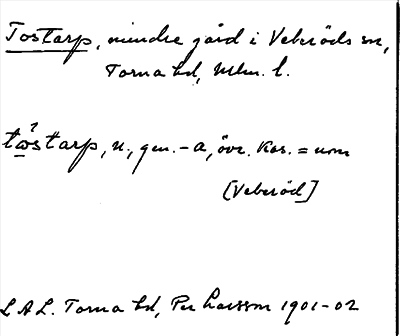 Tostarp, mindre gård i Veberöds sn,
Torna hd, Mlm. l.
tωstarp, n., gen. -a, övr. kas. = nom
[Veberöd]
LAL. Torna hd, Per Larsson 1901-02